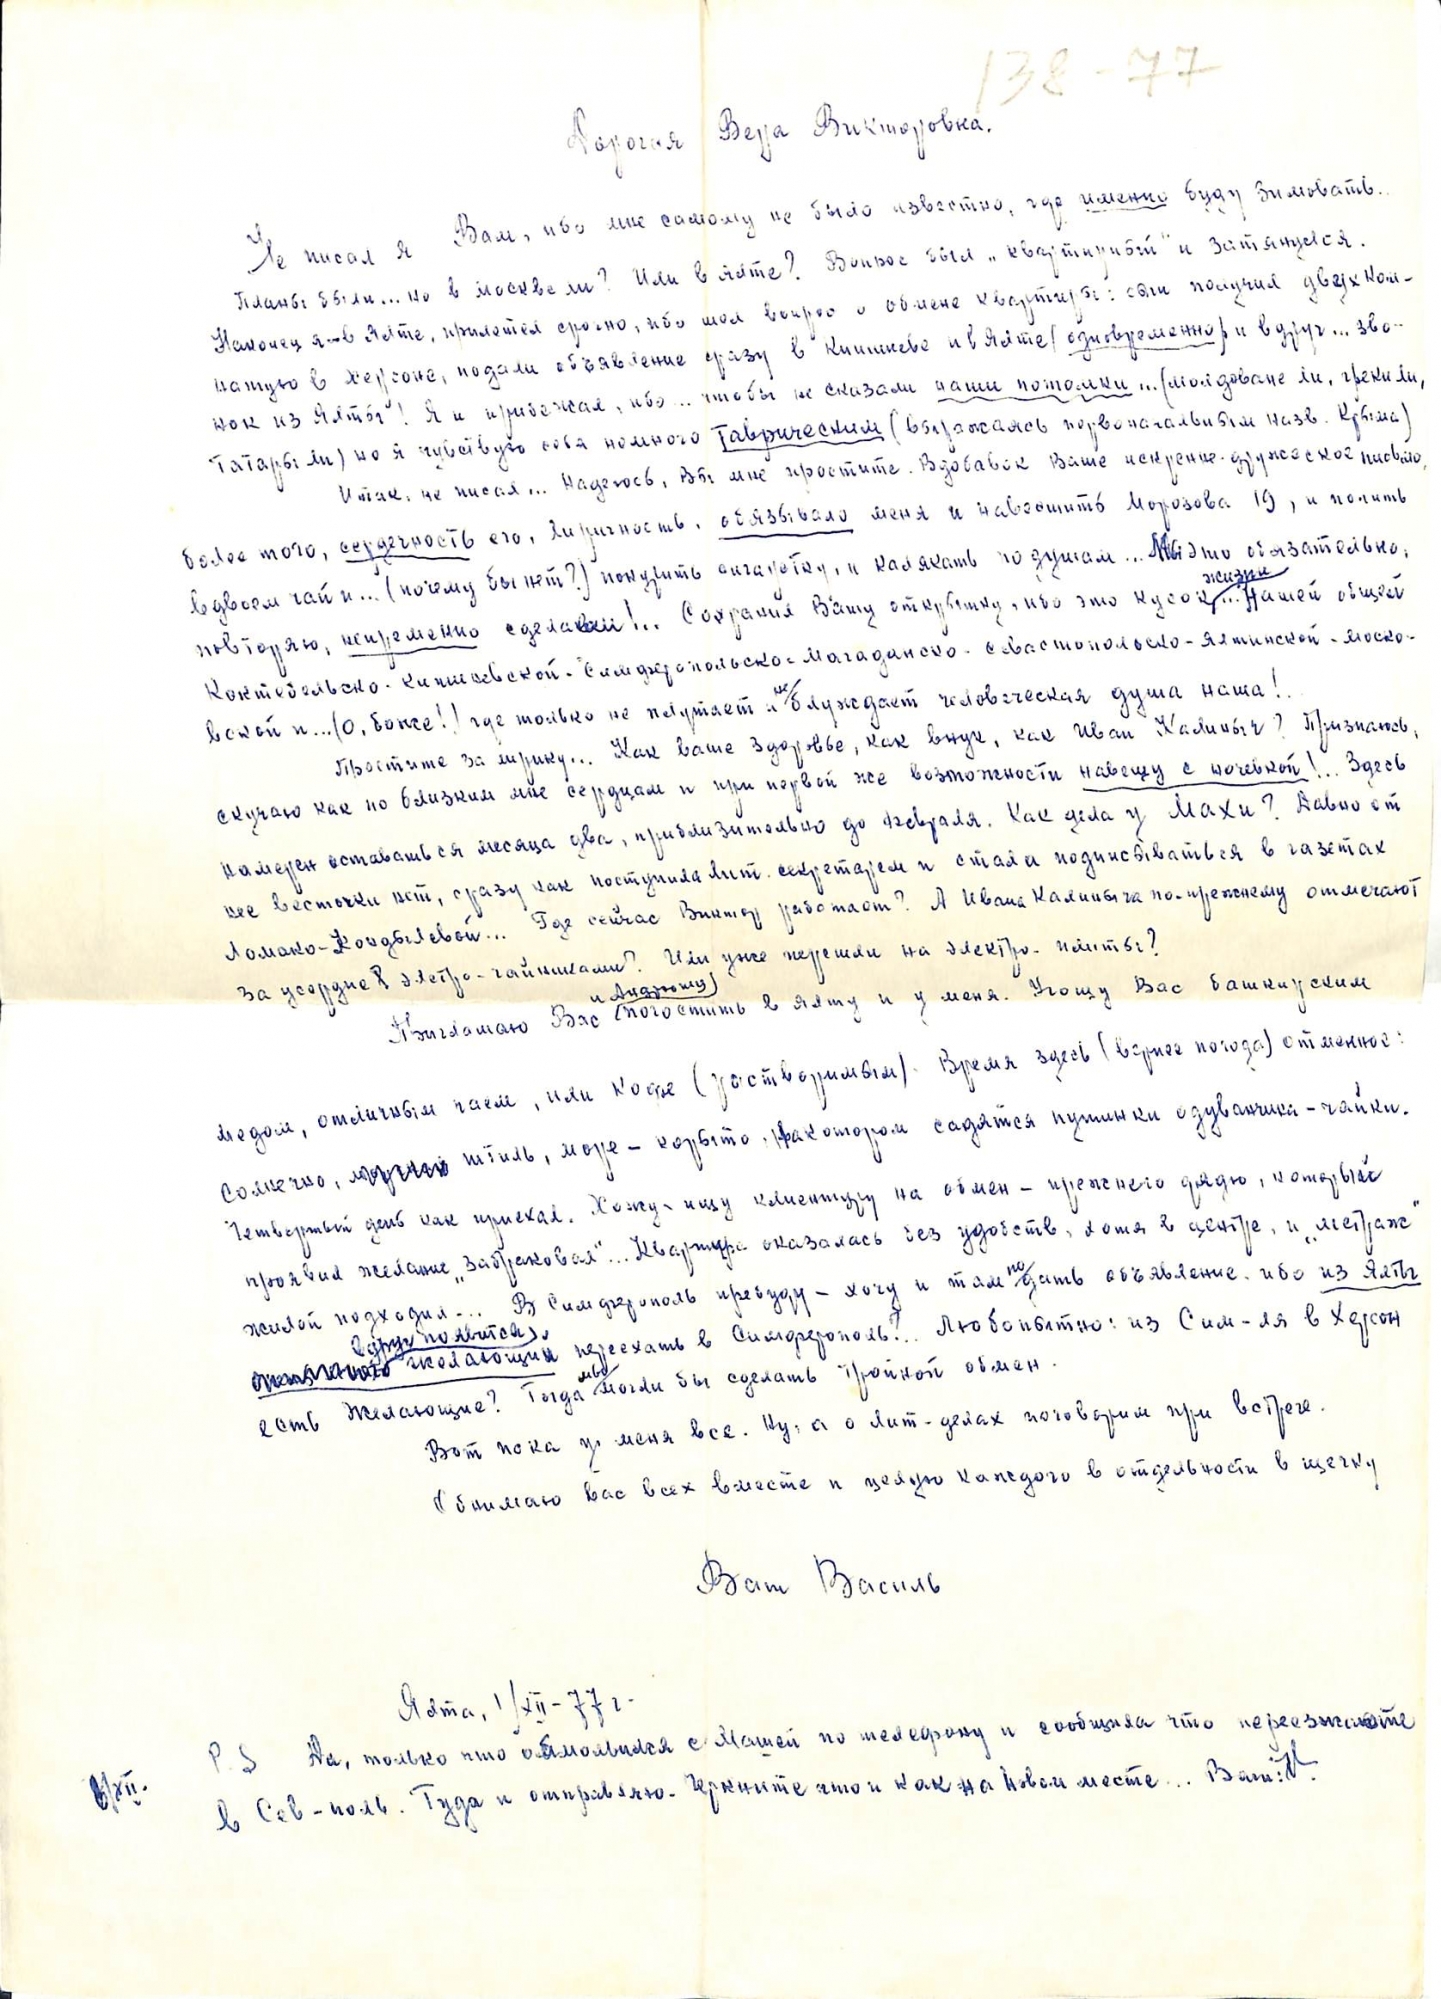 138-77
Дорогая Вера Викторовна.
Не писал я Вам, ибо мне самому не было известно, где именно буду зимовать..
Планы были... но в Москве ли? Или в Ялте? Вопрос был „квартирный" и затянулся.
Наконец я в Ялте, прилетел срочно, ибо шел вопрос о обмене квартиры: сын получил двухком-
натную в Херсоне, подали объявление сразу в Кишиневе и в Ялте (одновременно) и вдруг... зво-
нок из Ялты"! Я и прибежал, ибо... чтобы не сказали наши потомки... (молдоване ли, греки ли,
татары ли) но я чувствую себя немного Таврическим (выражаясь первоначальным назв. Крыма)
Итак, не писал... Надеюсь, Вы мне простите. Вдобавок Ваше искренне-дружеское письмо,
более того, сердечность его, лиричность, обязывало меня и навестить Морозова 19, и попить
вдвоем чай и... (почему бы нет?) покурить сигаретку, и калякать по душам... Мы это обязательно,
повторяю, непременно сделаем!... Сохранил Вашу открытку, ибо это кусок жизни... Нашей общей
Коктебельско-кишиневской-Симферопольско-Магаданско-севастопольско-ялтинской-моско-
вской и... (О, боже!) где только не плутает и не блуждает человеческая душа наша!..
Простите за лирику... Как ваше здоровье, как внук, как Иван Калиныч? Признаюсь,
скучаю как по близким мне сердцам и при первой же возможности навещу с ночевкой!.. Здесь
намерен оставаться месяца два, приблизительно до февраля. Как дела у Махи? Давно от
нее весточки нет, сразу как поступила лит. секретарем и стала подписываться в газетах
Ломако-Кондылевой... Где сейчас Виктор работает? А Ивана Калиныча по-прежнему отмечают
за усердие электро-чайниками? Или уже перешли на электро-плиты?
Приглашаю Вас и Андрюшу погостить в Ялту и у меня. Угощу Вас башкирским
медом, отличным чаем, или кофе (растворимым). Время здесь (вернее погода) отменное:
солнечно, штиль, море – корыто, на котором садятся пушинки одуванчика – чайки.
Четвертый день как приехал. Хожу – ищу клиентуру на обмен – прежнего дядю, который
проявил желание „забраковал"... Квартира оказалась без удобств, хотя в центре, и „метраж"
жилой подходил... В Симферополь прибуду – хочу и там подать объявление. ибо из Ялты
вдруг появится желающий переехать в Симферополь?.. Любопытно: из Сим-ля в Херсон
есть желающие? Тогда мы могли бы сделать тройной обмен.
Вот пока у меня все. Ну, а о лит-делах поговорим при встрече.
Обнимаю Вас всех вместе и целую каждого в отдельности в щечку
Ваш Василь
Ялта, 1/XII-77 г.
P.S Да, только что обмолвился с Машей по телефону и сообщила что переезжаете
/XII.
в Сев-поль. Туда и отправляю. Черкните что и как на новом месте... Ваш: